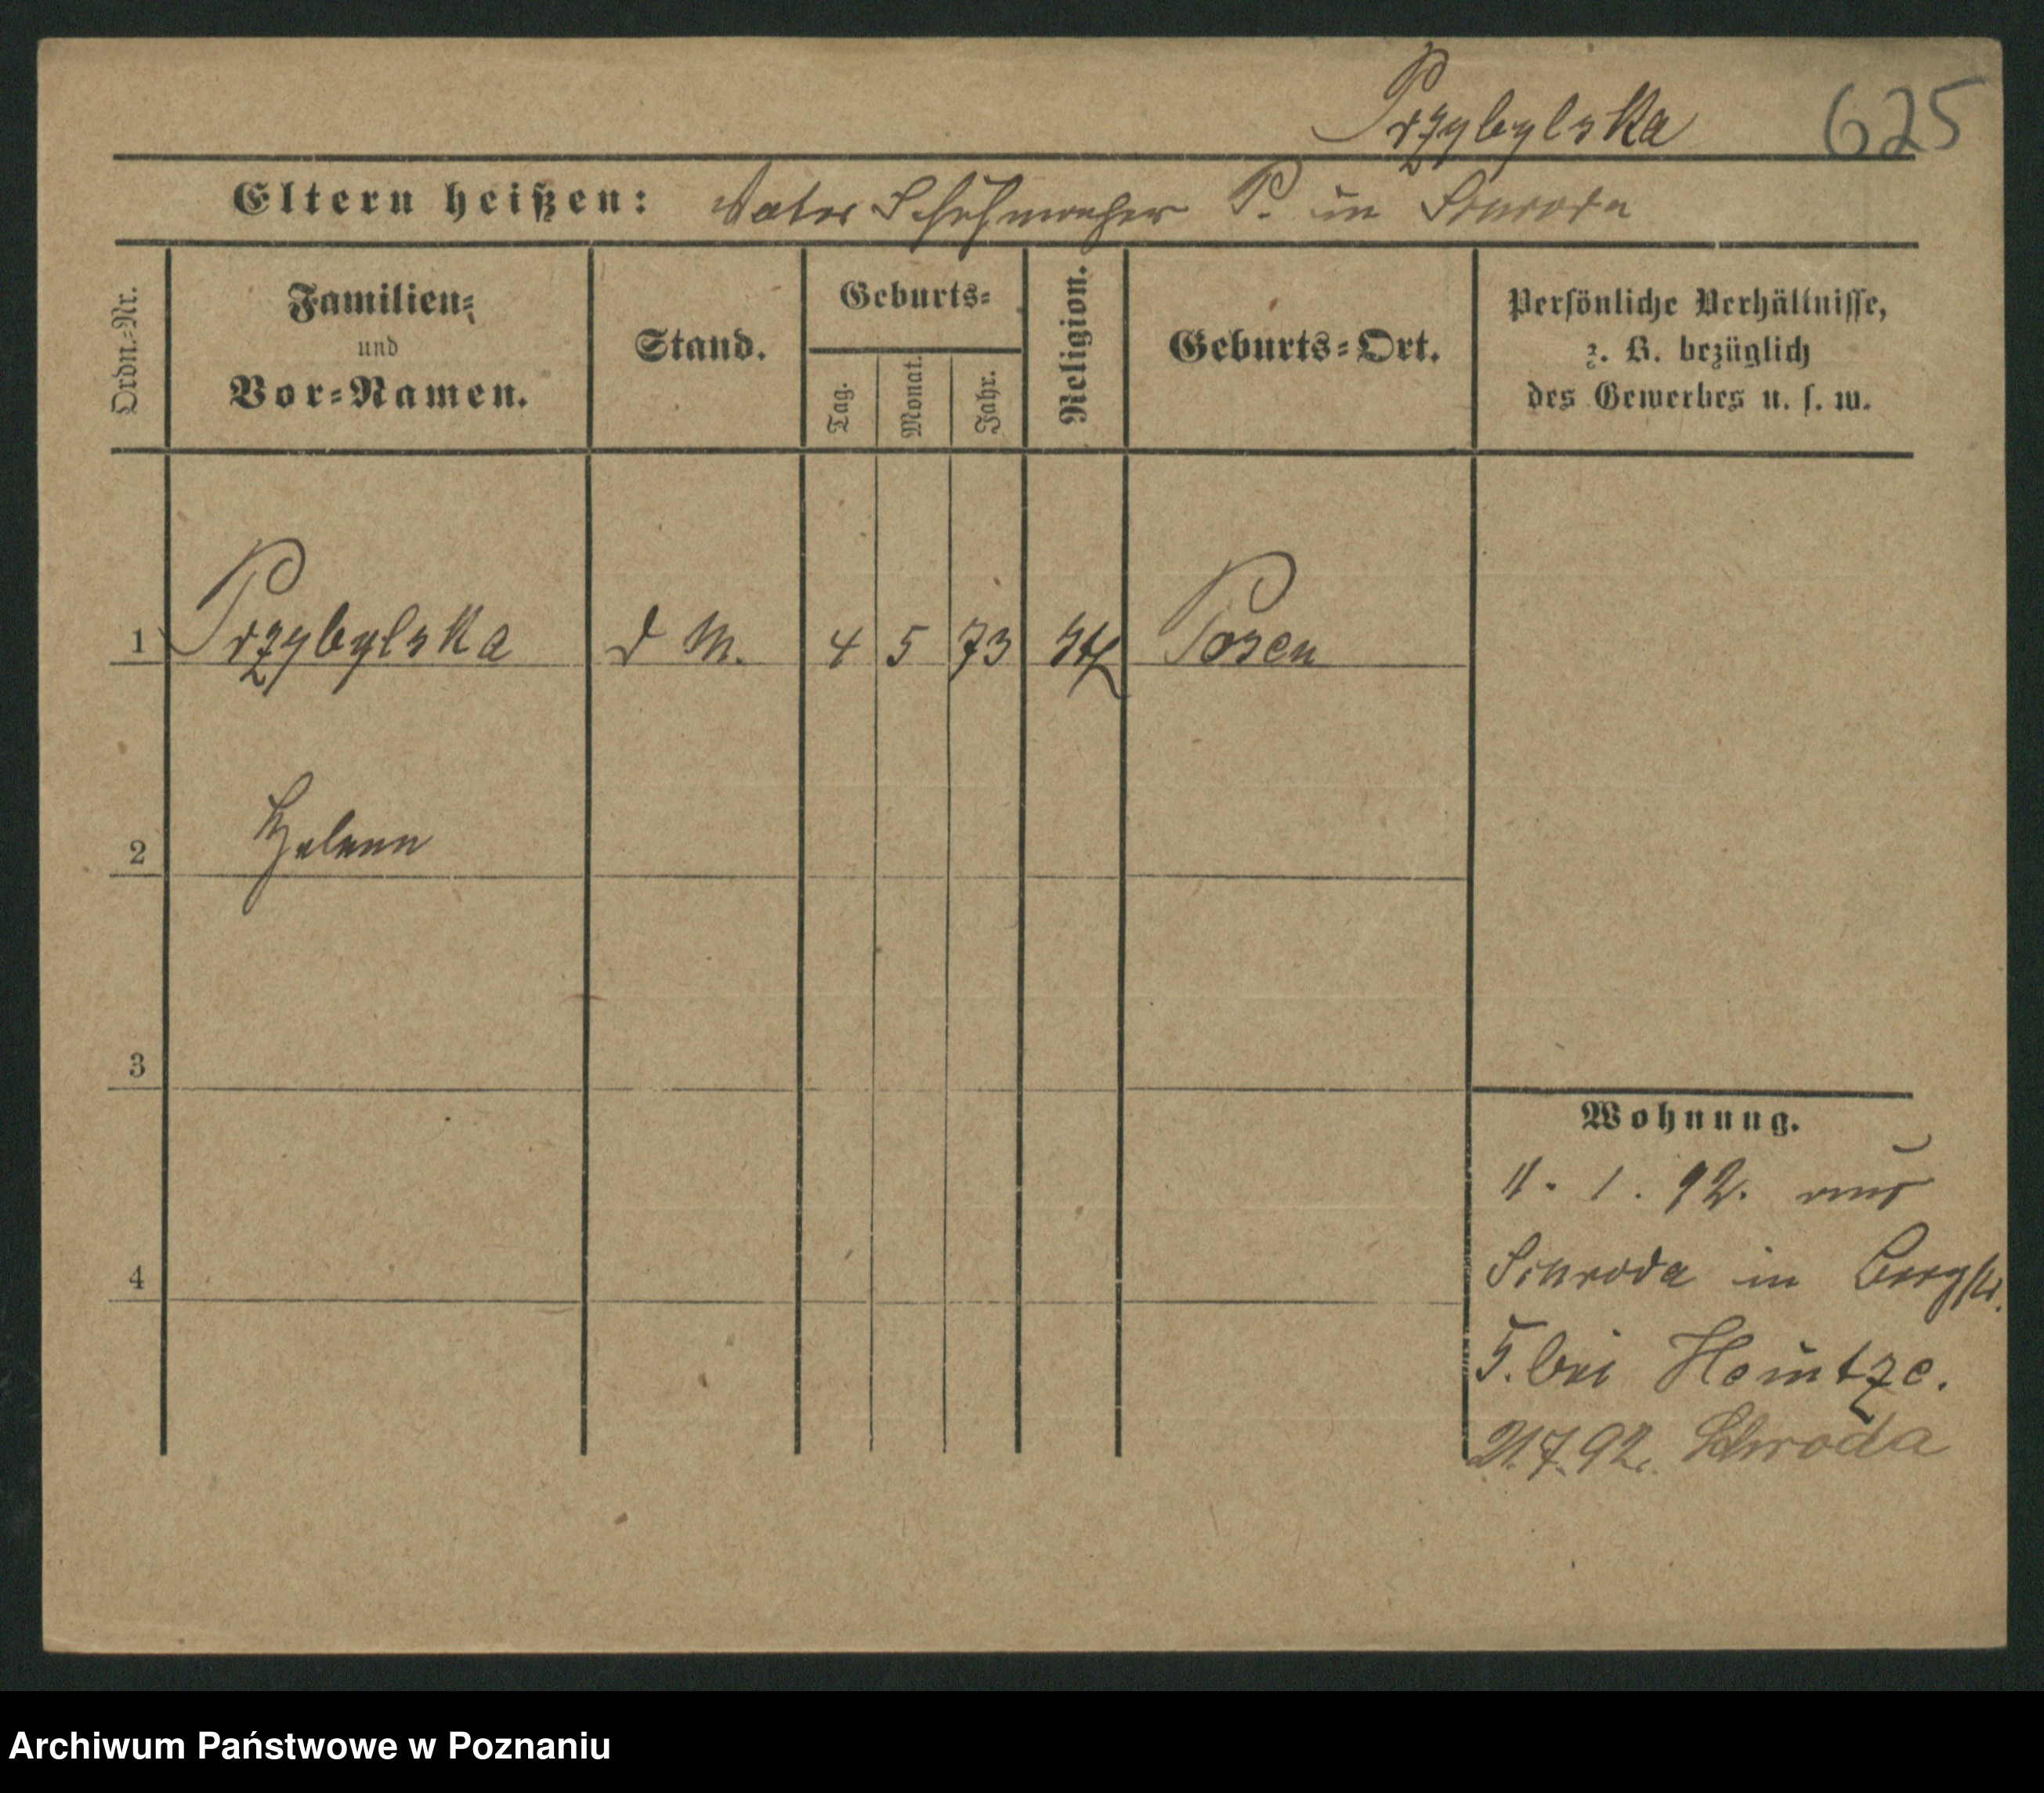 Przybylska 625
Eltern heißen: Vater Schuhmacher P. in Schroda
Ordn.-Nr.
Familien-
und
Vor-Namen.
Stand.
Geburts-
Tag.
Monat.
Jahr.
Religion.
Geburts-Ort.
Persönliche Verhältnisse,
z. B. bezüglich
des Gewerbes u. s. w.
1 Przybylska d M. 4 5 73 Posen
2 Helena
3
4
Wohnung.
11. 1. 92. aus
Schroda in Bergstr.
5. bei Heintze.
21.7.92. Schroda
Archiwum Państwowe w Poznaniu